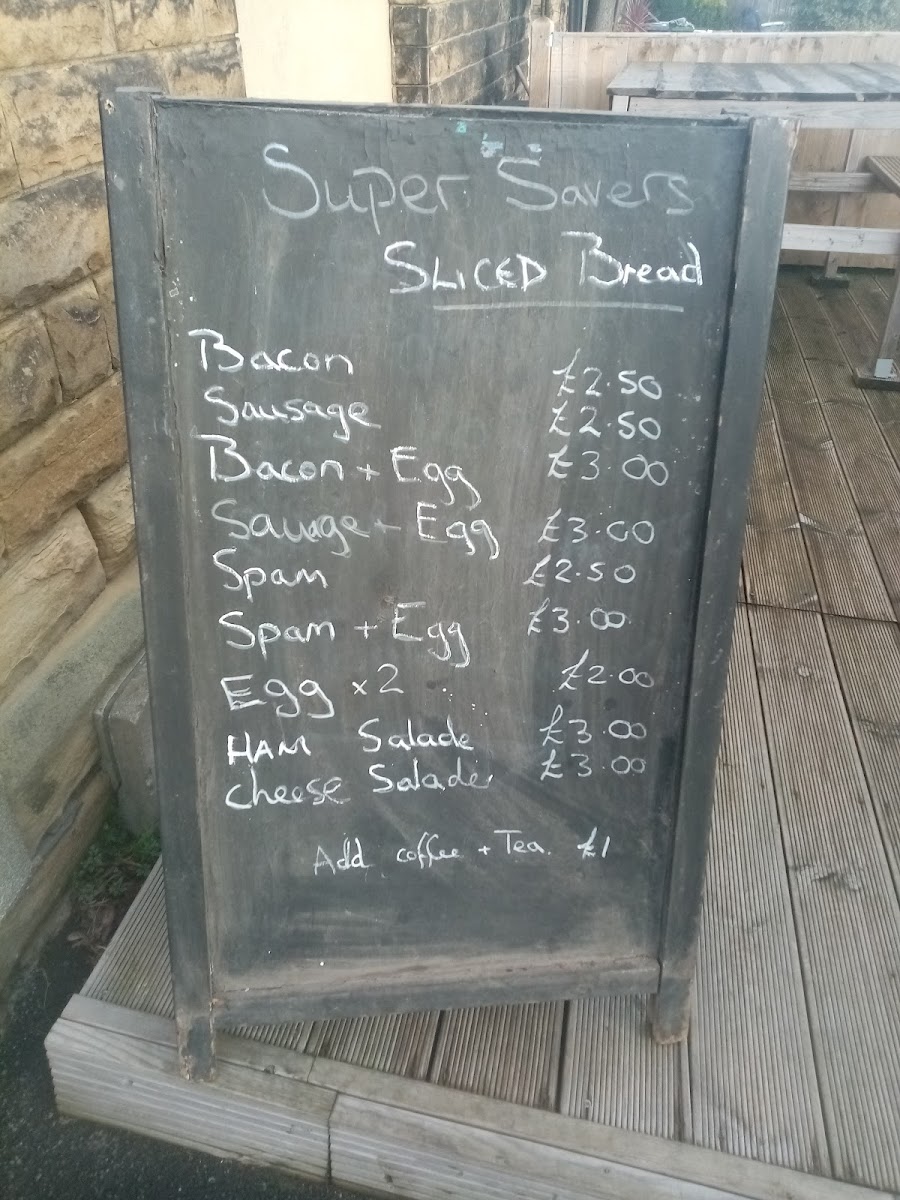 Super Savers
SLICED Bread
Bacon £2.50
Sausage £2.50
Bacon + Egg £3.00
Sausage + Egg £3.00
Spam £2.50
Spam + Egg £3.00
Egg x2 £2.00
HAM Salade £3.00
cheese Salade £3.00
Add coffee + Tea. £1